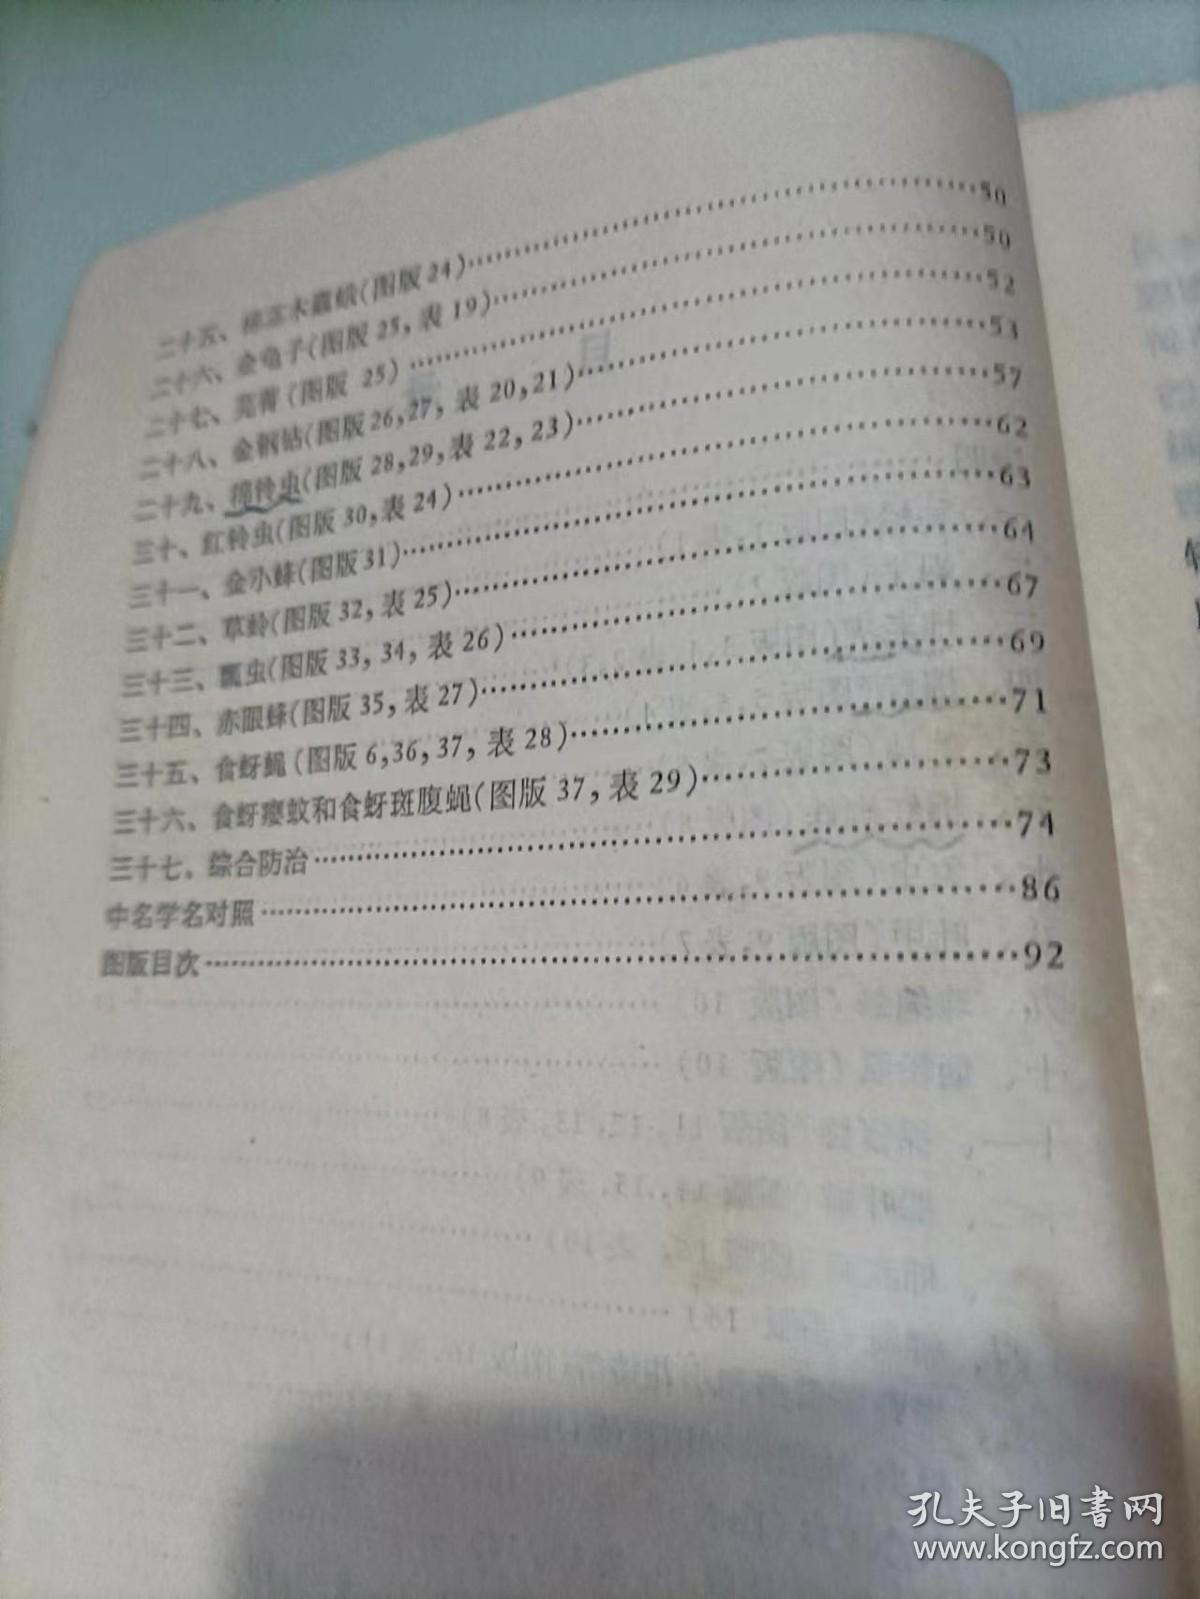 二十五、棉茎木蠹蛾(图版24)……50
二十六、金龟子(图版25,表19)……50
二十七、芫菁(图版 25)……52
二十八、金钢钻(图版26,27,表20,21)……53
二十九、棉铃虫(图版28,29,表22,23)……57
三十、红铃虫(图版30,表24)……62
三十一、金小蜂(图版31)……63
三十二、草蛉(图版32,表25)……64
三十三、瓢虫(图版33,34,表26)……67
三十四、赤眼蜂(图版35,表27)……69
三十五、食蚜蝇(图版6,36,37,表28)……71
三十六、食蚜瘿蚊和食蚜斑腹蝇(图版37,表29)……73
三十七、综合防治……74
中名学名对照……86
图版目次……92
孔夫子旧书网
www.kongfz.com